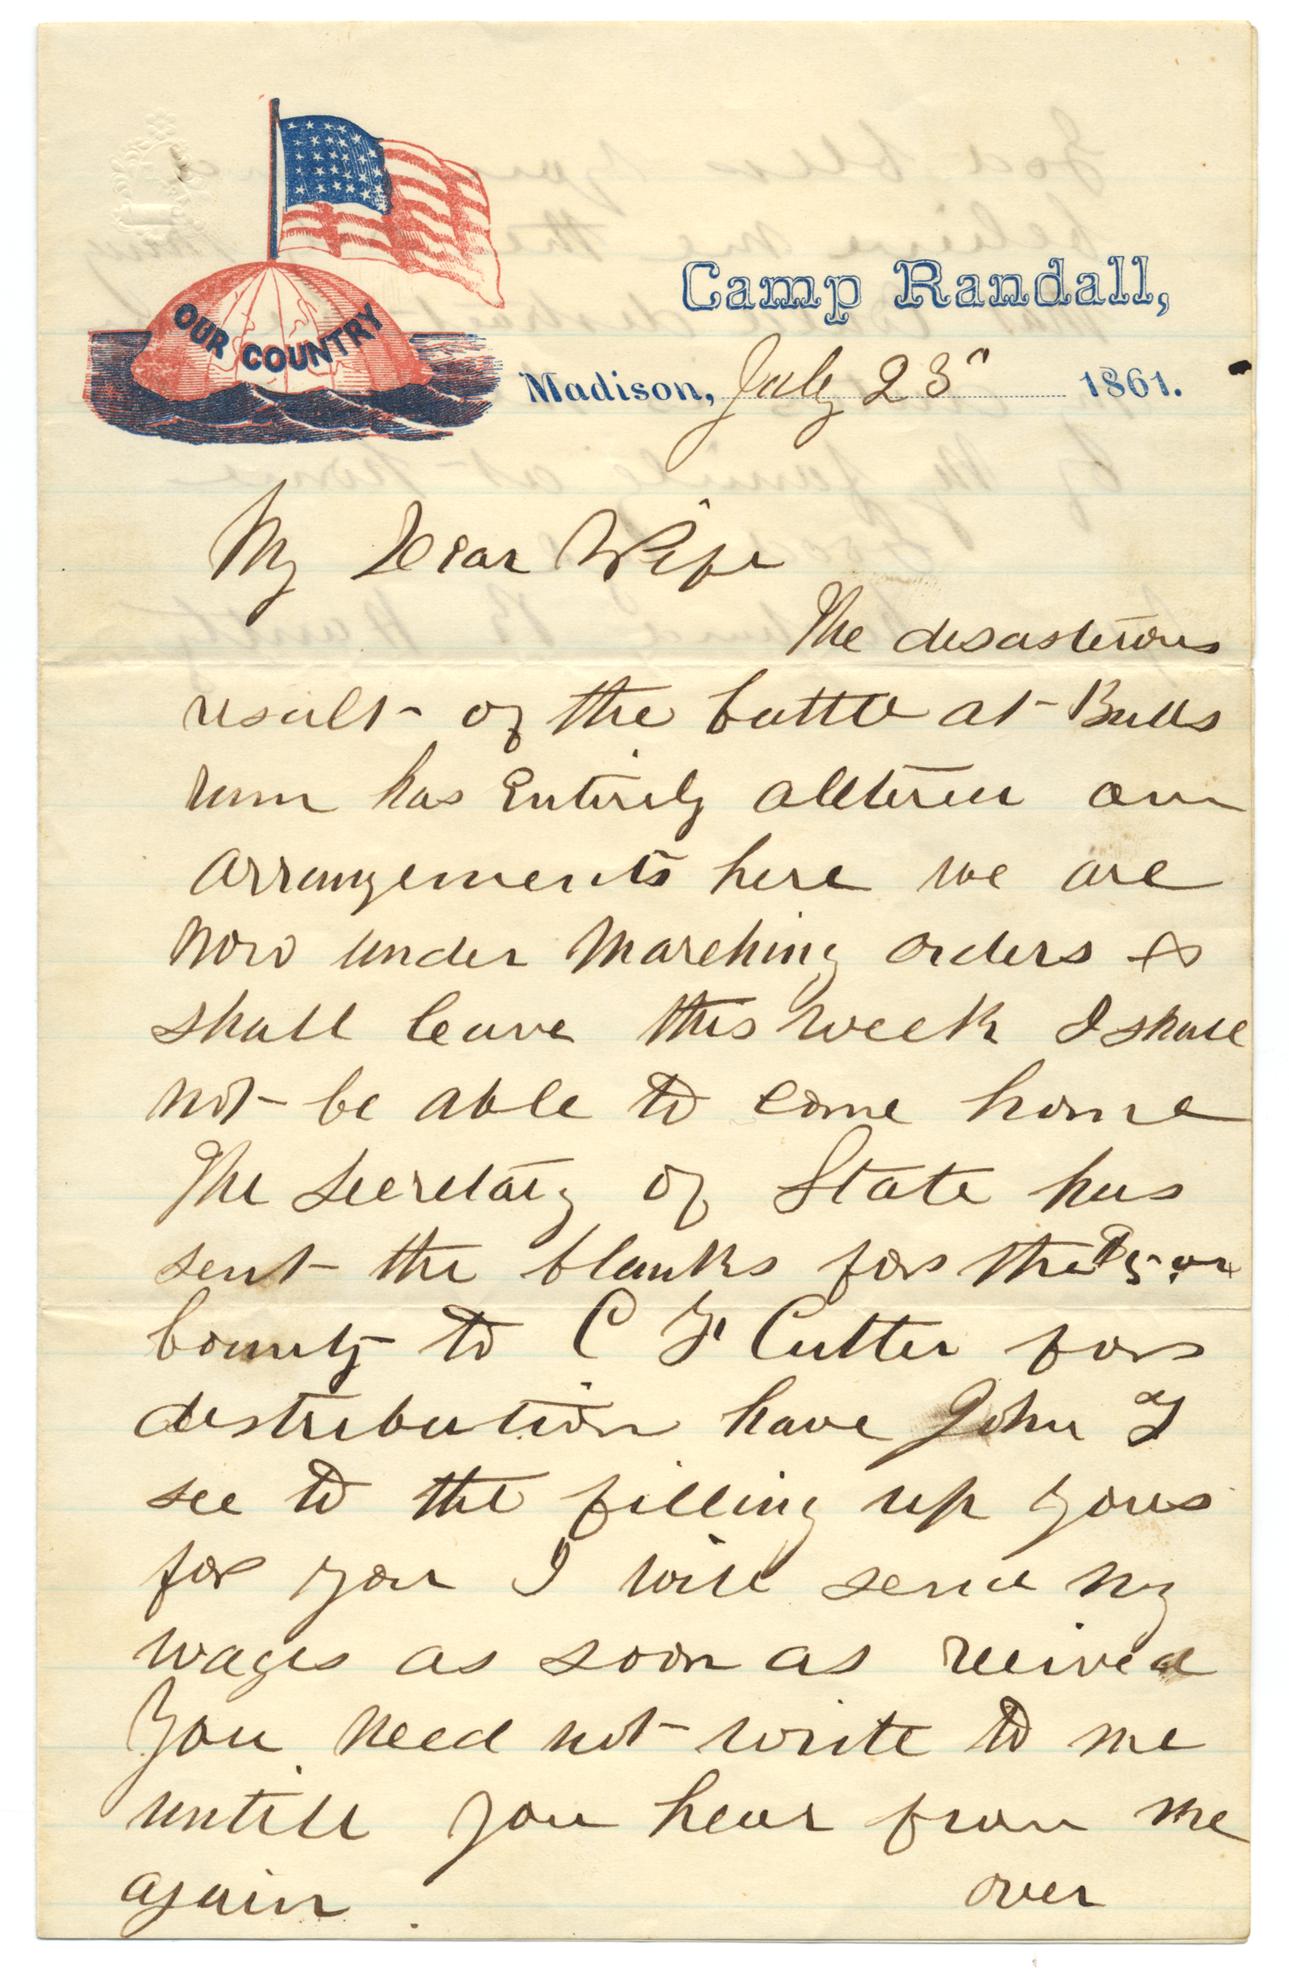 OUR COUNTRY
Camp Randall,
Madison, July 23" 1861.
My Dear Wife
The desasterous
result of the battle at Bulls
run has Entirely alltered our
arrangements here we are
now under marching orders &
shall leave this week I shall
not be able to come home
The Secretary of State has
sent the blanks for the $5.00
bounty to C F Cutter for
distribution have John
see to the filling up yours
for you I will send my
wages as soon as recived
You need not write to me
untill you hear from me
again. over